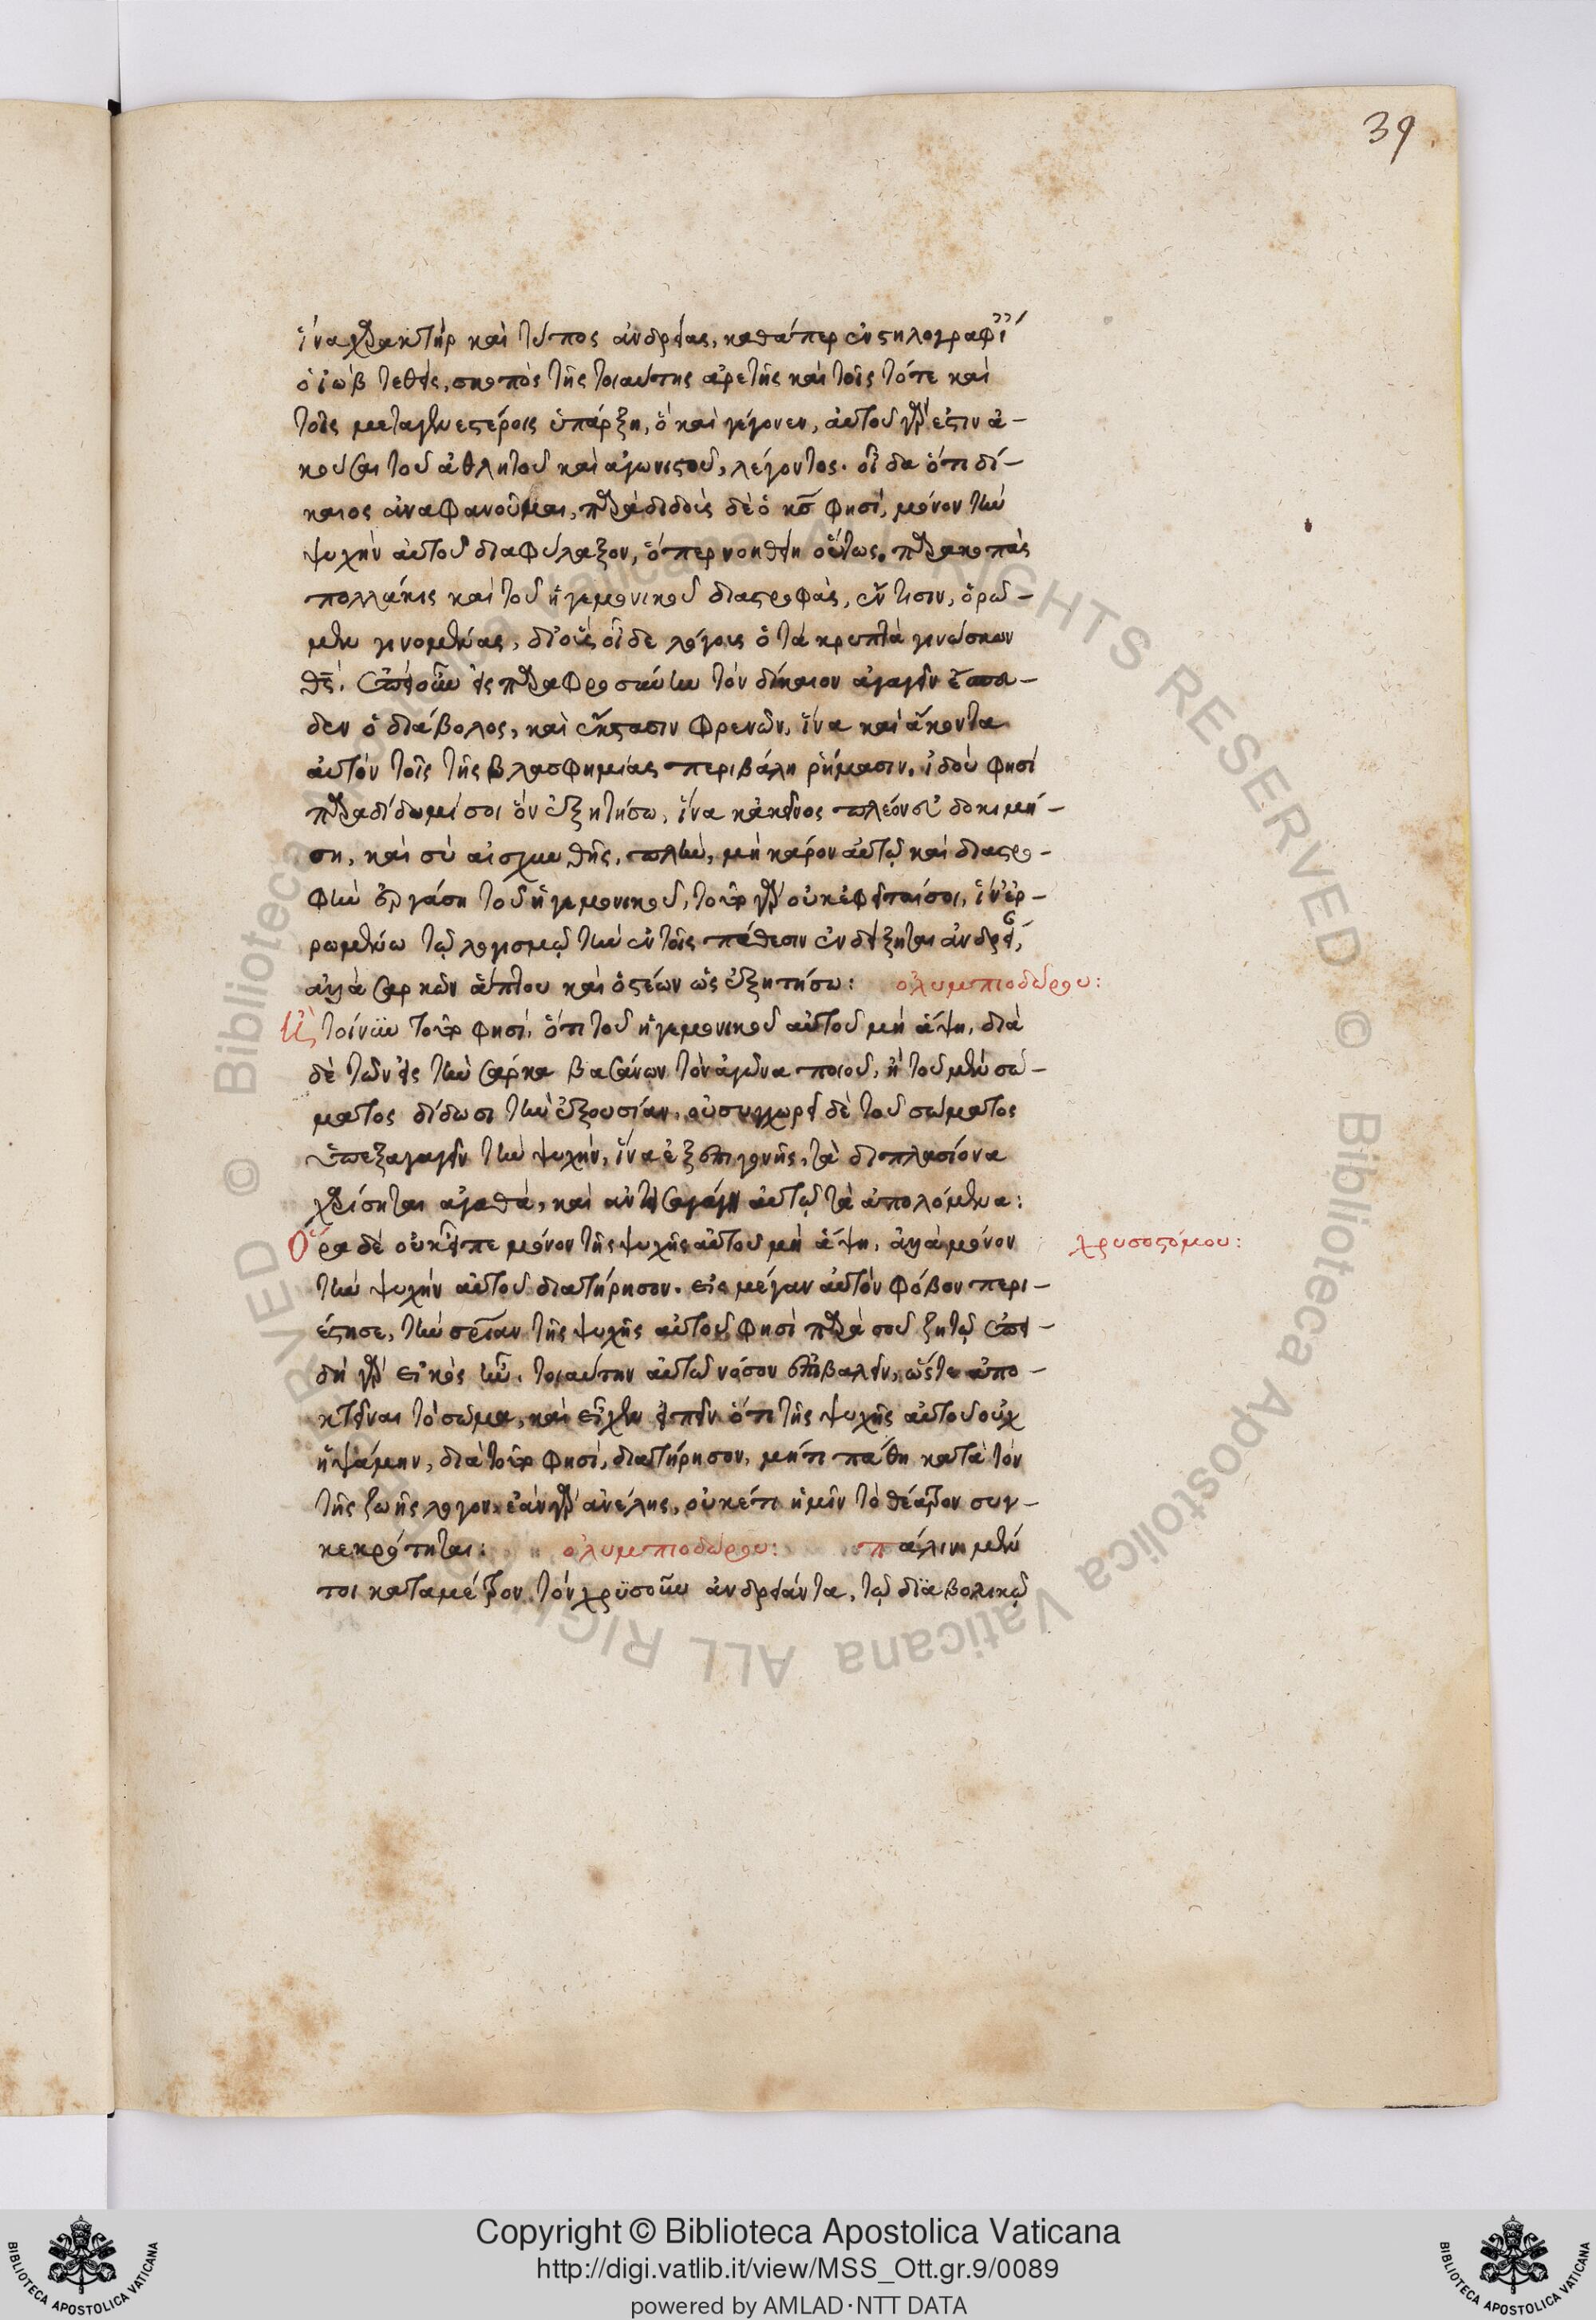 39
ἵνα χαρακτὴρ καὶ τύπος ἀνδρείας, καθάπερ ἐν στηλογραφί
ὁ ἰὼβ τεθεὶς, σκοπὸς τῆς τοιαύτης ἀρετῆς καὶ τοῖς τότε καὶ
τοῖς μεταγενεστέροις ὑπάρξῃ, ὃ καὶ γέγονεν, αὐτοῦ γάρ ἐστιν ἀ-
κοῦσαι τοῦ ἀθλητοῦ καὶ ἀγωνιστοῦ, λέγοντος. οἶδα ὅτι δί-
καιος ἀναφανοῦμαι, παραδιδοὺς δὲ ὁ κς φησὶ, μόνον τὴν
ψυχὴν αὐτοῦ διαφύλαξον, ὅπερ νοηθείη οὕτως. παρακοπὰς
πολλάκις καὶ τοῦ ἡγεμονικοῦ διαστροφὰς, ἔν τισιν, ὁρῶ-
μεν γινομένας, δι' οὓς οἶδε λόγους ὁ τὰ κρυπτὰ γινώσκων
θς. ἐπεὶ οὖν εἰς παραφροσύνην τὸν δίκαιον ἀγαγεῖν ἔσπευ-
δεν ὁ διάβολος, καὶ ἔκστασιν φρενῶν, ἵνα καὶ ἄκοντα
αὐτὸν τοῖς τῆς βλασφημίας περιβάλῃ ῥήμασιν. ἰδού φησί
παραδίδωμί σοι ὃν ἐξῃτήσω, ἵνα κἀκεῖνος πλέον εὐδοκιμή-
σῃ, καὶ σὺ αἰσχυνθῇς, πλὴν, μὴ κάρον αὐτῷ καὶ διαστρο-
φὴν ἐργάσῃ τοῦ ἡγεμονικοῦ, τοῦτο γὰρ οὐκ ἐφεῖταί σοι, ἵν' ἐρ-
ρωμένῳ τῷ λογισμῷ τὴν ἐν τοῖς πάθεσιν ἐνδείξηται ἀνδρεί,
ἀλλὰ σαρκῶν ἅπτου καὶ ὀστέων ὡς ἐξῃτήσω: ὀλυμπιοδώρου:
τοίνυν τοῦτο φησὶ, ὅτι τοῦ ἡγεμονικοῦ αὐτοῦ μὴ ἅψῃ, διὰ
δὲ τῶν εἰς τὴν σάρκα βασάνων τὸν ἀγῶνα ποιοῦ, ἢ τοῦ μὲν σώ-
ματος δίδωσι τὴν ἐξουσίαν, οὐ συγχωρεῖ δὲ τοῦ σώματος
ὑπεξαγαγεῖν τὴν ψυχὴν, ἵνα ἐξ ἐπιγονῆς, τὰ διπλασίονα
χαρίσηται ἀγαθὰ, καὶ αὐτῷ τὰ ἀπολόμενα:
Ὅρα δὲ οὐκ εἶπε μόνον τῆς ψυχῆς αὐτοῦ μὴ ἅψῃ, ἀλλὰ μόνον χρυσοστόμου:
τὴν ψυχὴν αὐτοῦ διατήρησον. εἰς μέγαν αὐτὸν φόβον περι-
έστησε, τὴν σρίαν τῆς ψυχῆς αὐτοῦ φησὶ παρὰ σοῦ ζητῶ ἐπει-
δὴ γὰρ εἰκὸς ἦν, τοιαύτην αὐτῷ νόσον ἐπιβαλεῖν, ὥστε ἀπο-
κτεῖναι τὸ σῶμα, καὶ εἶχεν εἰπεῖν ὅτι τῆς ψυχῆς αὐτοῦ οὐχ
ἡψάμην, διὰ τοῦτο φησὶ, διατήρησον, μήτι πάθῃ κατὰ τὸν
τῆς ζωῆς λόγον. ἐὰν γὰρ ἀνέλῃς, οὐκέτι ἡμῖν τὸ θέατρον συγ-
κεκρότηται: ὀλυμπιοδώρου: πάλιν μέν
τοι καταμέτρον τὸν χρϋσοῦν ἀνδριάντα, τῷ διαβολικῷ
Copyright © Biblioteca Apostolica Vaticana
http://digi.vatlib.it/view/MSS_Ott.gr.9/0089
powered by AMLAD·NTT DATA